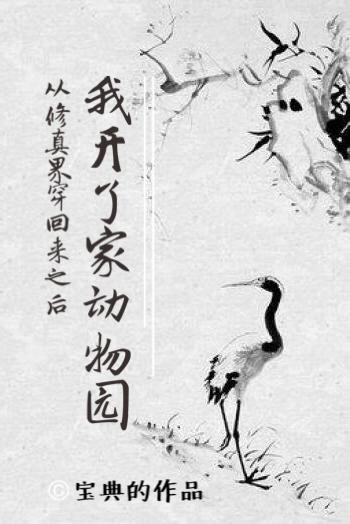 从修真界穿回来之后
我开了家动物园
© 宝典的作品